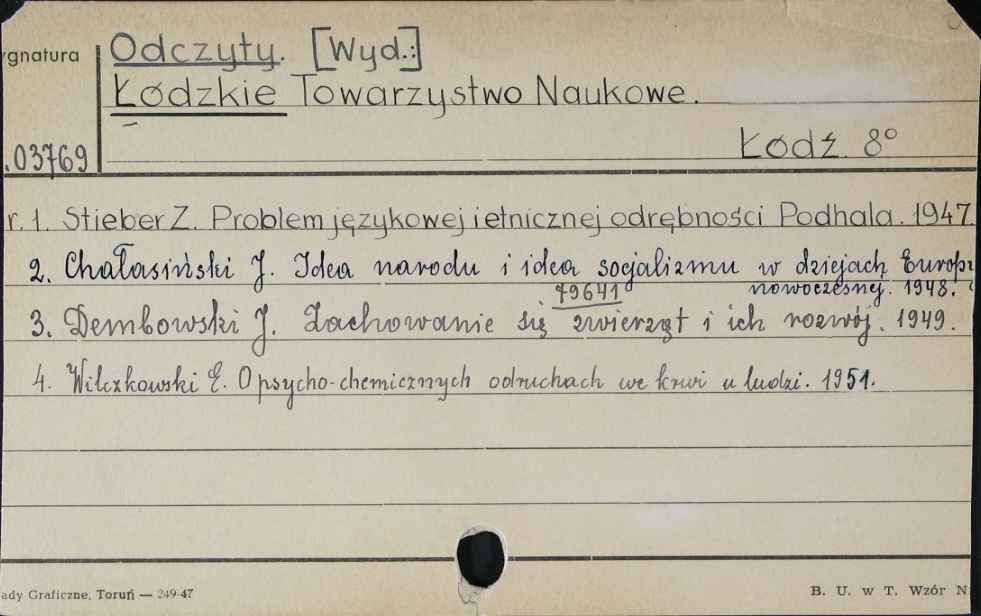 ygnatura
Odczyty. [Wyd.:]
Łódzkie Towarzystwo Naukowe.
.03769
Łódź. 8°
r. 1. Stieber Z. Problem językowej i etnicznej odrębności Podhala. 1947.
2. Chałasiński J. Idea narodu i idea socjalizmu w dziejach Europy
79641 nowoczesnej. 1948.
3. Dembowski J. Zachowanie się zwierząt i ich rozwój. 1949.
4. Wilczkowski E. O psycho-chemicznych odruchach we krwi u ludzi. 1951.
ady Graficzne, Toruń — 249-47
B. U. w T. Wzór N